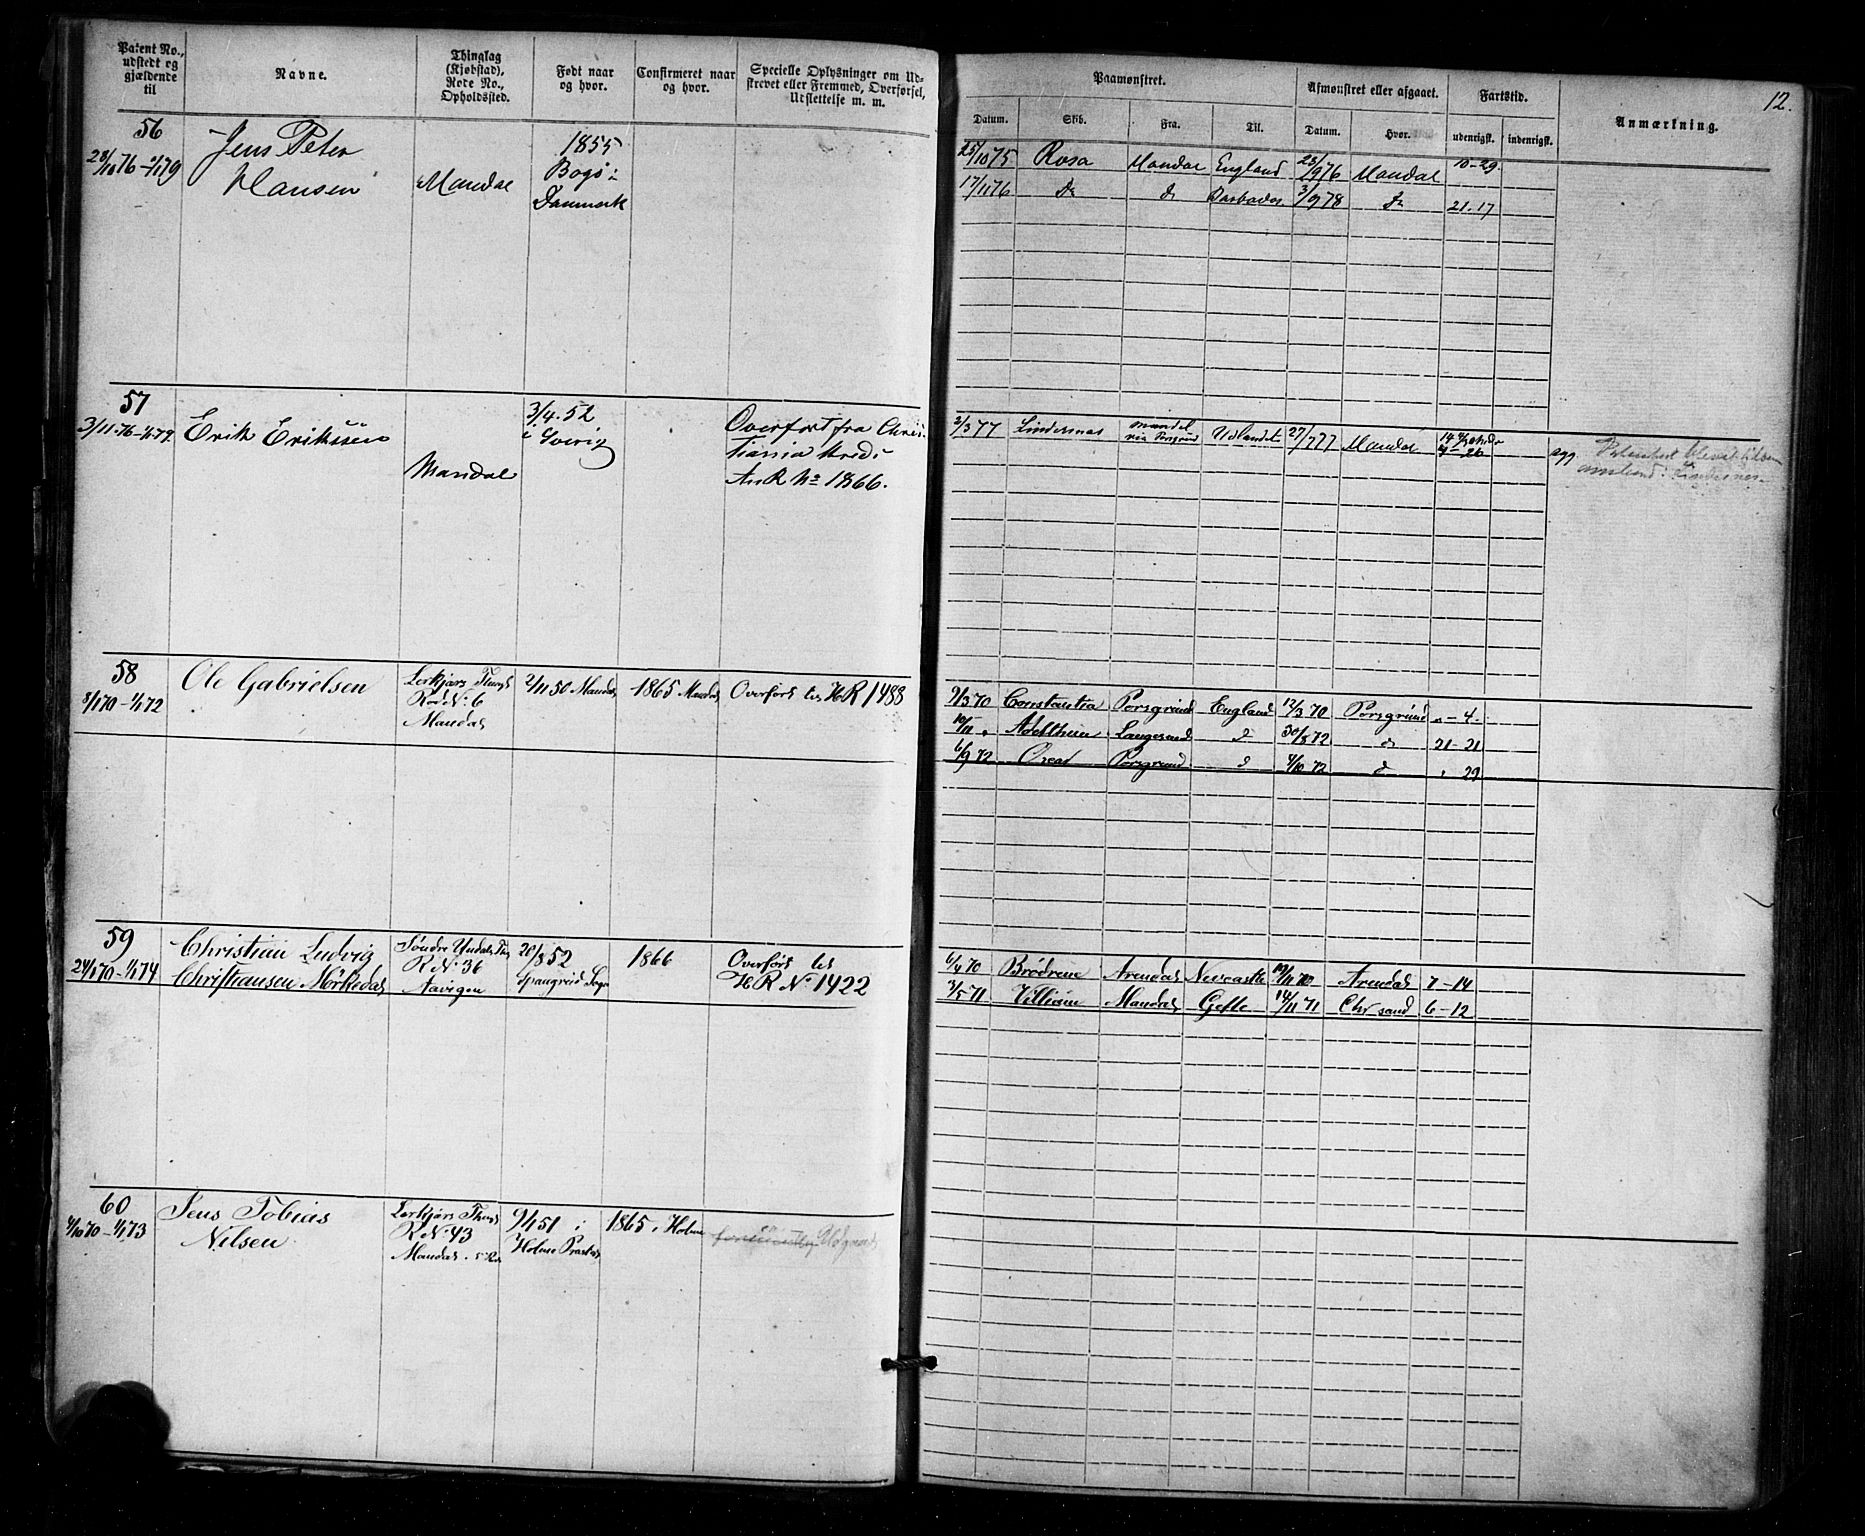 Patent No., udstedt og gjældende til
Navne.
Thinglag (Kjøbstad), Rode No., Opholdssted.
Født naar og hvor.
Confirmeret naar og hvor.
Specielle Oplysninger om Udskrevet eller Fremmed, Overførsel, Udslettelse m. m.
56
28/10 76 - 1/1 79
Jens Peter
Hansen
Mandal
1855
Bogø i
Danmark
57
3/11 76 - 1/1 79
Erik Eriksen
Mandal
3/4. 52
i Sverig
Overført fra Chris-
tiania Kreds
An R No 1866.
58
8/1 70 - 1/1 72
Ole Gabrielsen
R No 6
Mandal
2/11 50 Mandal
1865 Mandal
Overført til HR 1488
59
24/1 70 - 1/1 74
Christian Ludvig
Christiansen Mörkedal
Söndre Undals Thg
R No 36
Aavigen
20/8 52
Spangreid Sogn
1866
Overført til
HR No 1422
60
4/10 70 - 1/1 73
Jens Tobias
Nilsen
R No 43
Mandal
9/1 51 i
Holme Præstg
1865 i Holme
12.
Paamønstret.
Afmønstret eller afgaaet.
Fartstid.
Anmærkning.
Datum.
Skib.
Fra.
Til.
Datum.
Hvor.
udenrigsk.
indenrigsk.
25/10 75 Rosa Mandal England 28/9 76 Mandal 10-29.
17/11 76 Do do Barbados 3/9 78 Do 21.17
2/3 77 Lindesnæs Mandal via Porsgrund Udlandet 27/7 77 Mandal
9/3 70 Constantia Porsgrund England 12/3 70 Porsgrund „ - 4.
10/11 „ Adelthein Langesund d 30/8 72 d 21-21
6/9 72 Oscar Porsgrund d 4/10 72 d „ 29
6/4 70 Brödrene Arendal Newcastle 19/11 70 Arendal 7-14
3/5 71 Villiam Mandal Gefle 14/11 71 Chr sand 6-12